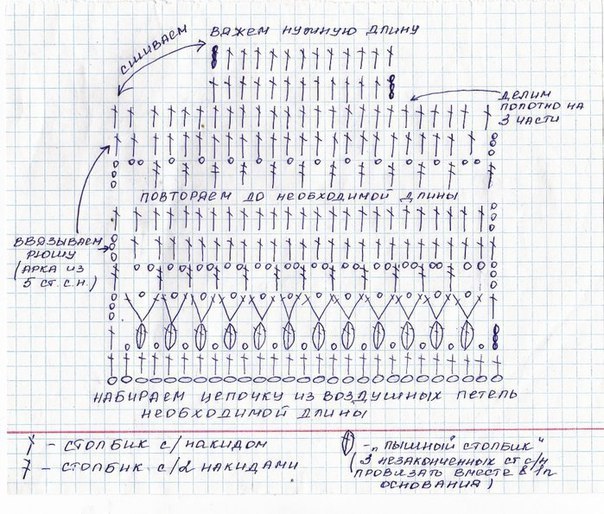 ВЯЖЕМ НУЖНУЮ ДЛИНУ
СШИВАЕМ
ДЕЛИМ
ПОЛОТНО НА
3 ЧАСТИ
ПОВТОРЯЕМ ДО НЕОБХОДИМОЙ ДЛИНЫ
ВВЯЗЫВАЕМ
РЮШУ
(АРКА ИЗ
5 СТ. С.Н.)
НАБИРАЕМ ЦЕПОЧКУ ИЗ ВОЗДУШНЫХ ПЕТЕЛЬ
НЕОБХОДИМОЙ ДЛИНЫ
- СТОЛБИК С/НАКИДОМ
- СТОЛБИК С/2 НАКИДАМИ
- „ПЫШНЫЙ СТОЛБИК"
(3 НЕЗАКОНЧЕННЫХ СТ С/Н
ПРОВЯЗАТЬ ВМЕСТЕ В 1П
ОСНОВАНИЯ)